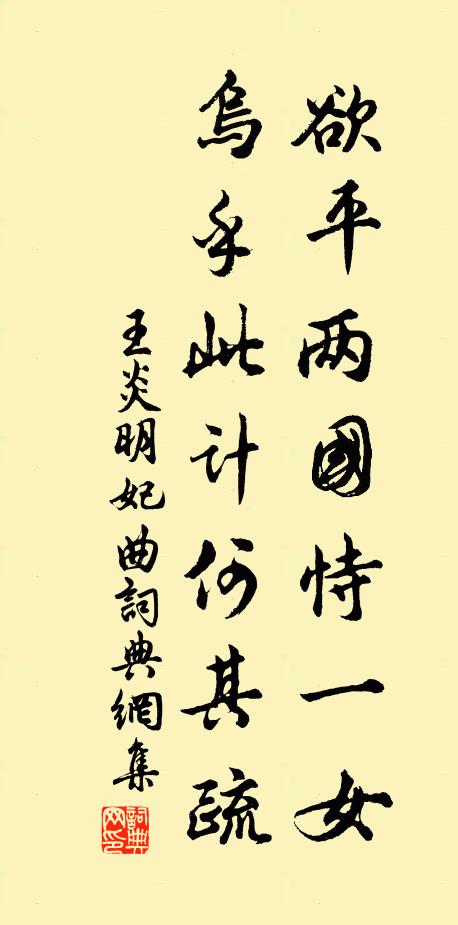 欲平两國恃一女
烏乎此计何其疏
王炎明妃曲詞典網集
詞典网印